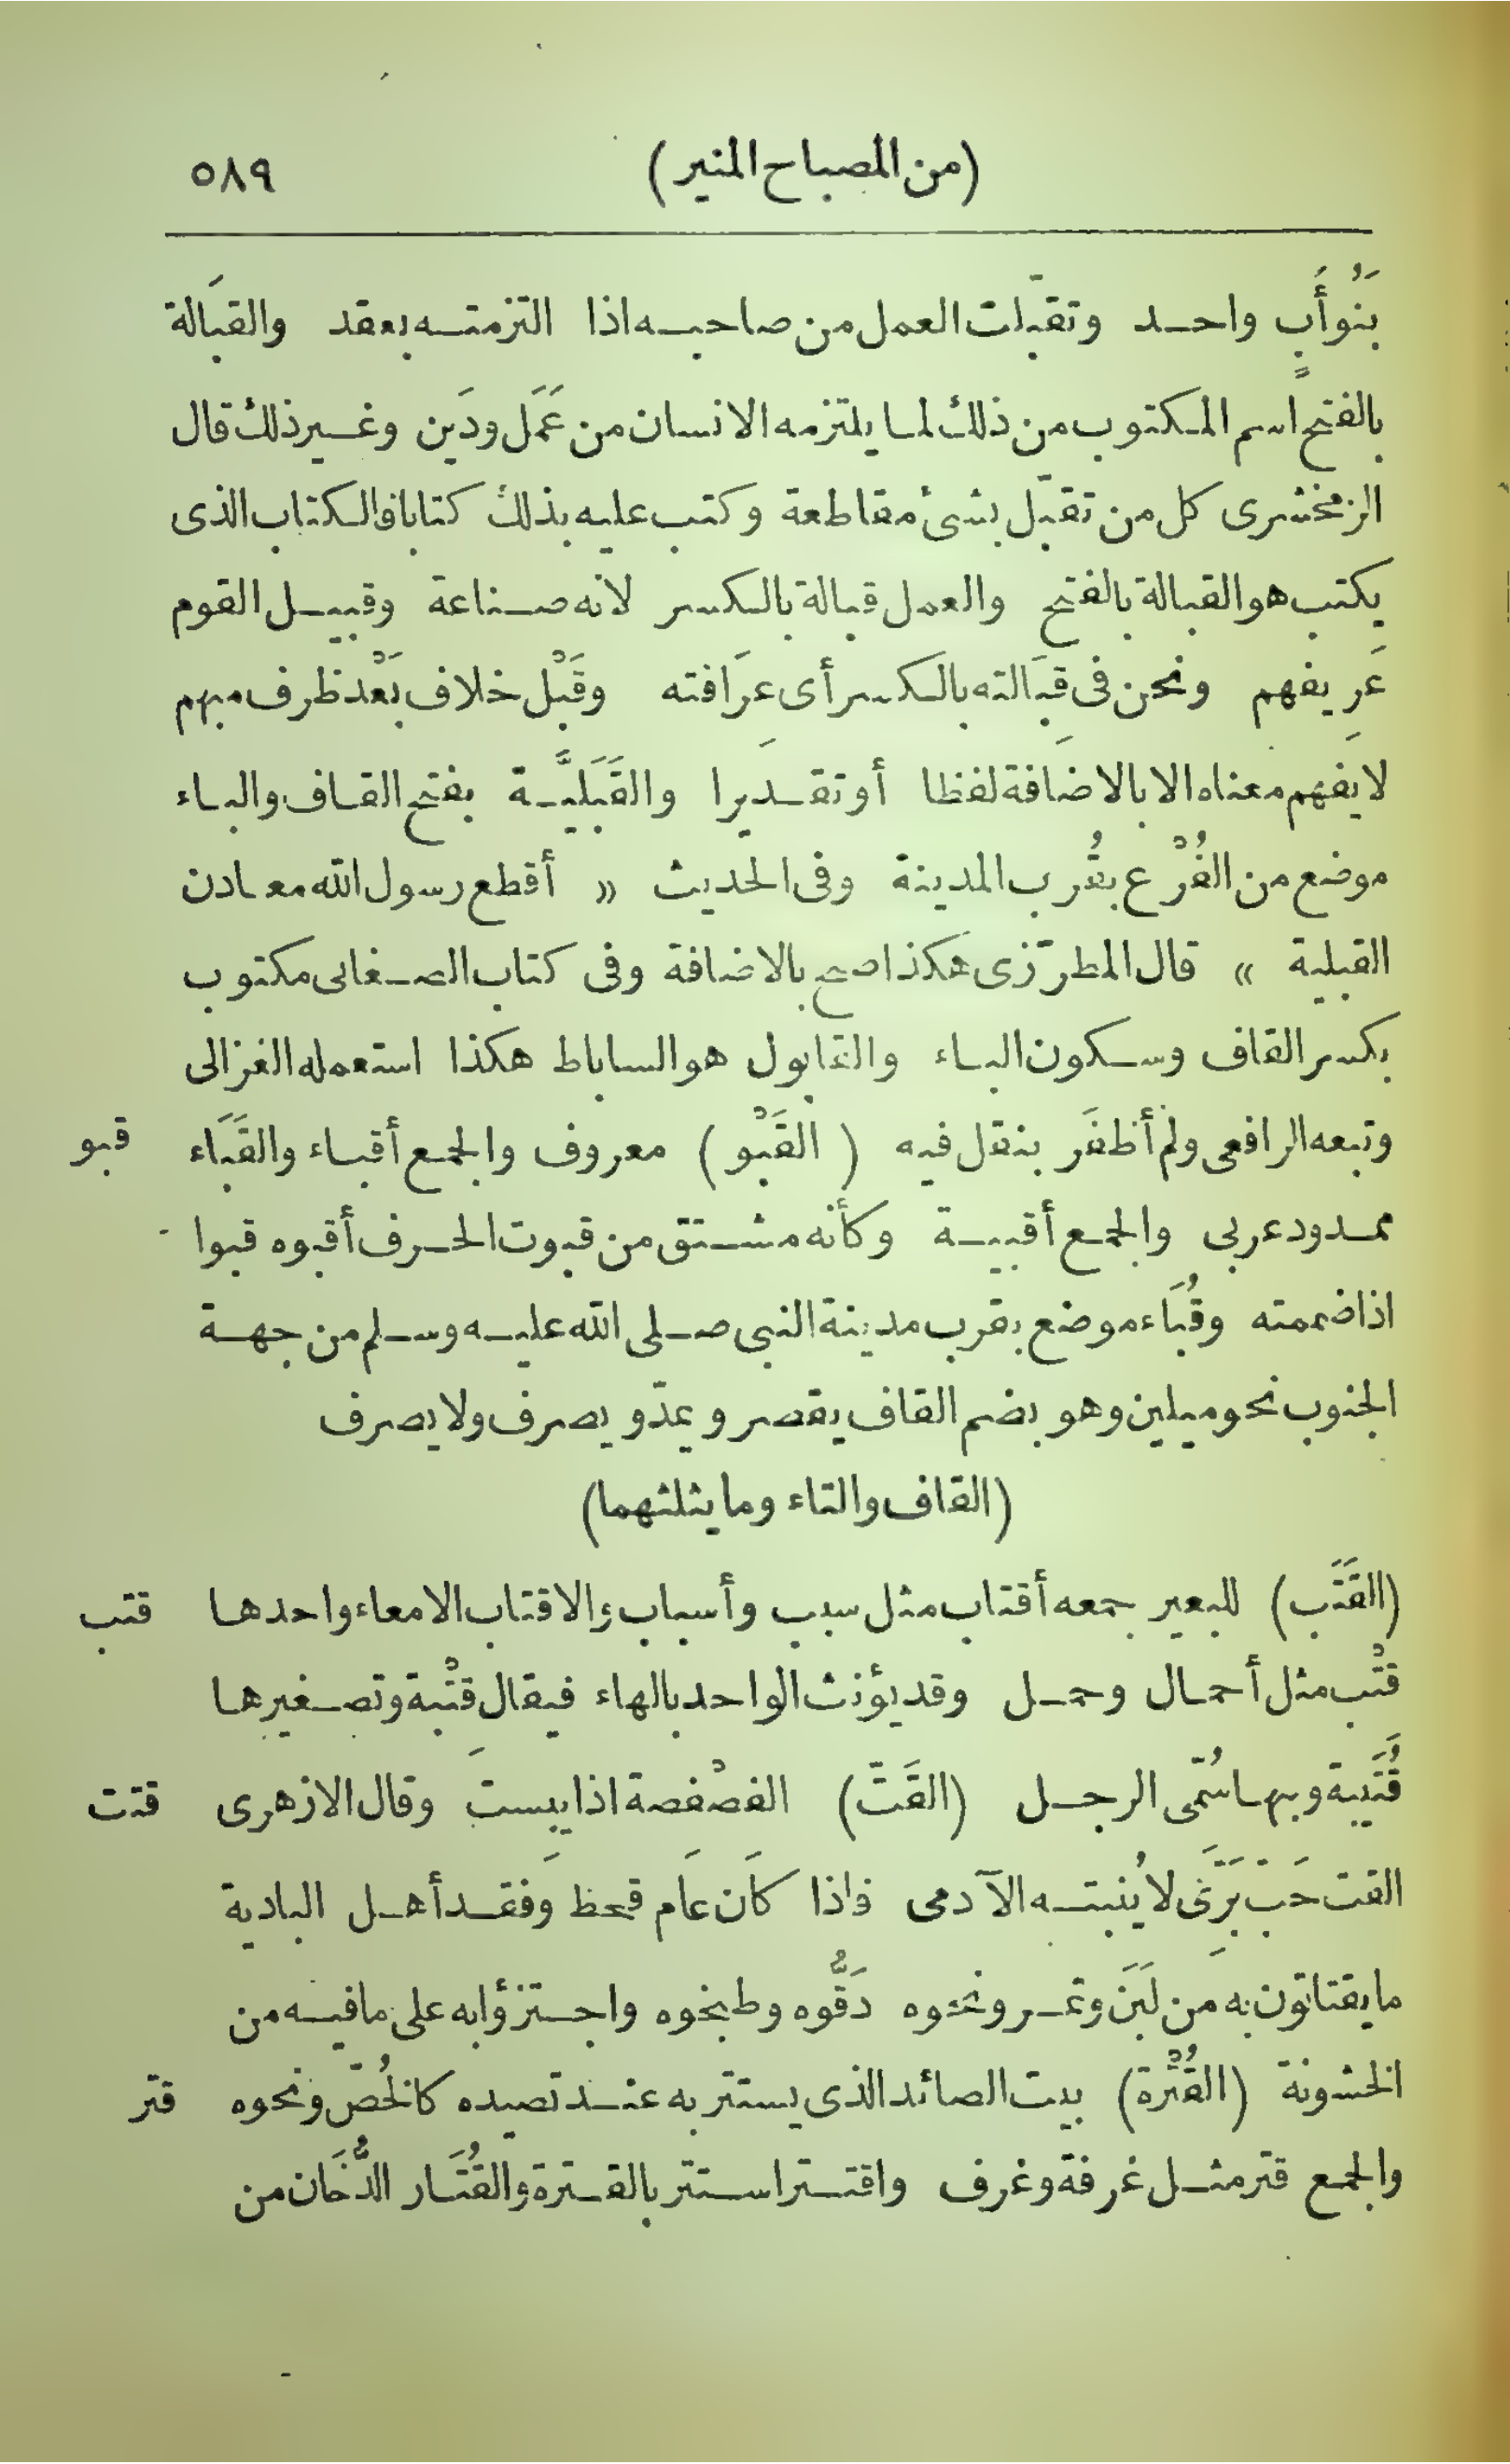 (من المصباح المنير) ٥٨٩
بَنُو أَبٍ واحد وتقبّلت العمل من صاحبه اذا التزمته بعقد والقَبَالة
بالفتح اسم المكتوب من ذلك لما يلتزمه الانسان من عَمَل ودَين وغير ذلك قال
الزمخشرى كل من تقبّل بشئ مقاطعة وكتب عليه بذلك كتابا فالكتاب الذى
يكتب هو القبالة بالفتح والعمل قبالة بالكسر لانه صناعة وقبيل القوم
عَرِيفهم ونحن فى قِبَالته بالكسر أى عِرَافته وقَبْل خلاف بَعْد ظرف مبهم
لا يفهم معناه الا بالاضافة لفظا أو تقديرا والقَبَلِيَّة بفتح القاف والباء
موضع من الفُرْع بقُرب المدينة وفى الحديث « أقطع رسول الله معادن
القبلية » قال المطرّزى هكذا صح بالاضافة وفى كتاب الصغانى مكتوب
بكسر القاف وسكون الباء والقابول هو الساباط هكذا استعمله الغزالى
وتبعه الرافعى ولم أظفَر بنقل فيه (القَبْو) معروف والجمع أقباء والقَبَاء قبو
ممدود عربى والجمع أقبية وكأنه مشتق من قبوت الحرف أقبوه قبوا
اذا ضممته وقُبَاء موضع بقرب مدينة النبى صلى الله عليه وسلم من جهة
الجنوب نحو ميلين وهو بضم القاف يقصر ويمدّ ويصرف ولا يصرف
(القاف والتاء وما يثلثهما)
(القَتَب) للبعير جمعه أقتاب مثل سبب وأسباب والاقتاب الامعاء واحدها قتب
قتْب مثل أحمال وحمل وقد يؤنث الواحد بالهاء فيقال قتْبة وتصغيرها
قُتَيبة وبها سُمّى الرجل (القَتّ) الفصْفصة اذا يبست وقال الازهرى قتت
القت حَبّ بَرِّىّ لا يُنبته الآدمى فاذا كَان عَام قحط وفَقد أهل البادية
ما يقتاتون به من لَبَن وتمر ونحوه دَقُّوه وطبخوه واجتزؤا به على ما فيه من
الخشونة (القُتْرة) بيت الصائد الذى يستتر به عند تصيده كالخُصّ ونحوه قتر
والجمع قتر مثل غرفة وغرف واقتتر استتر بالقترة والقُتَار الدُّخَان من